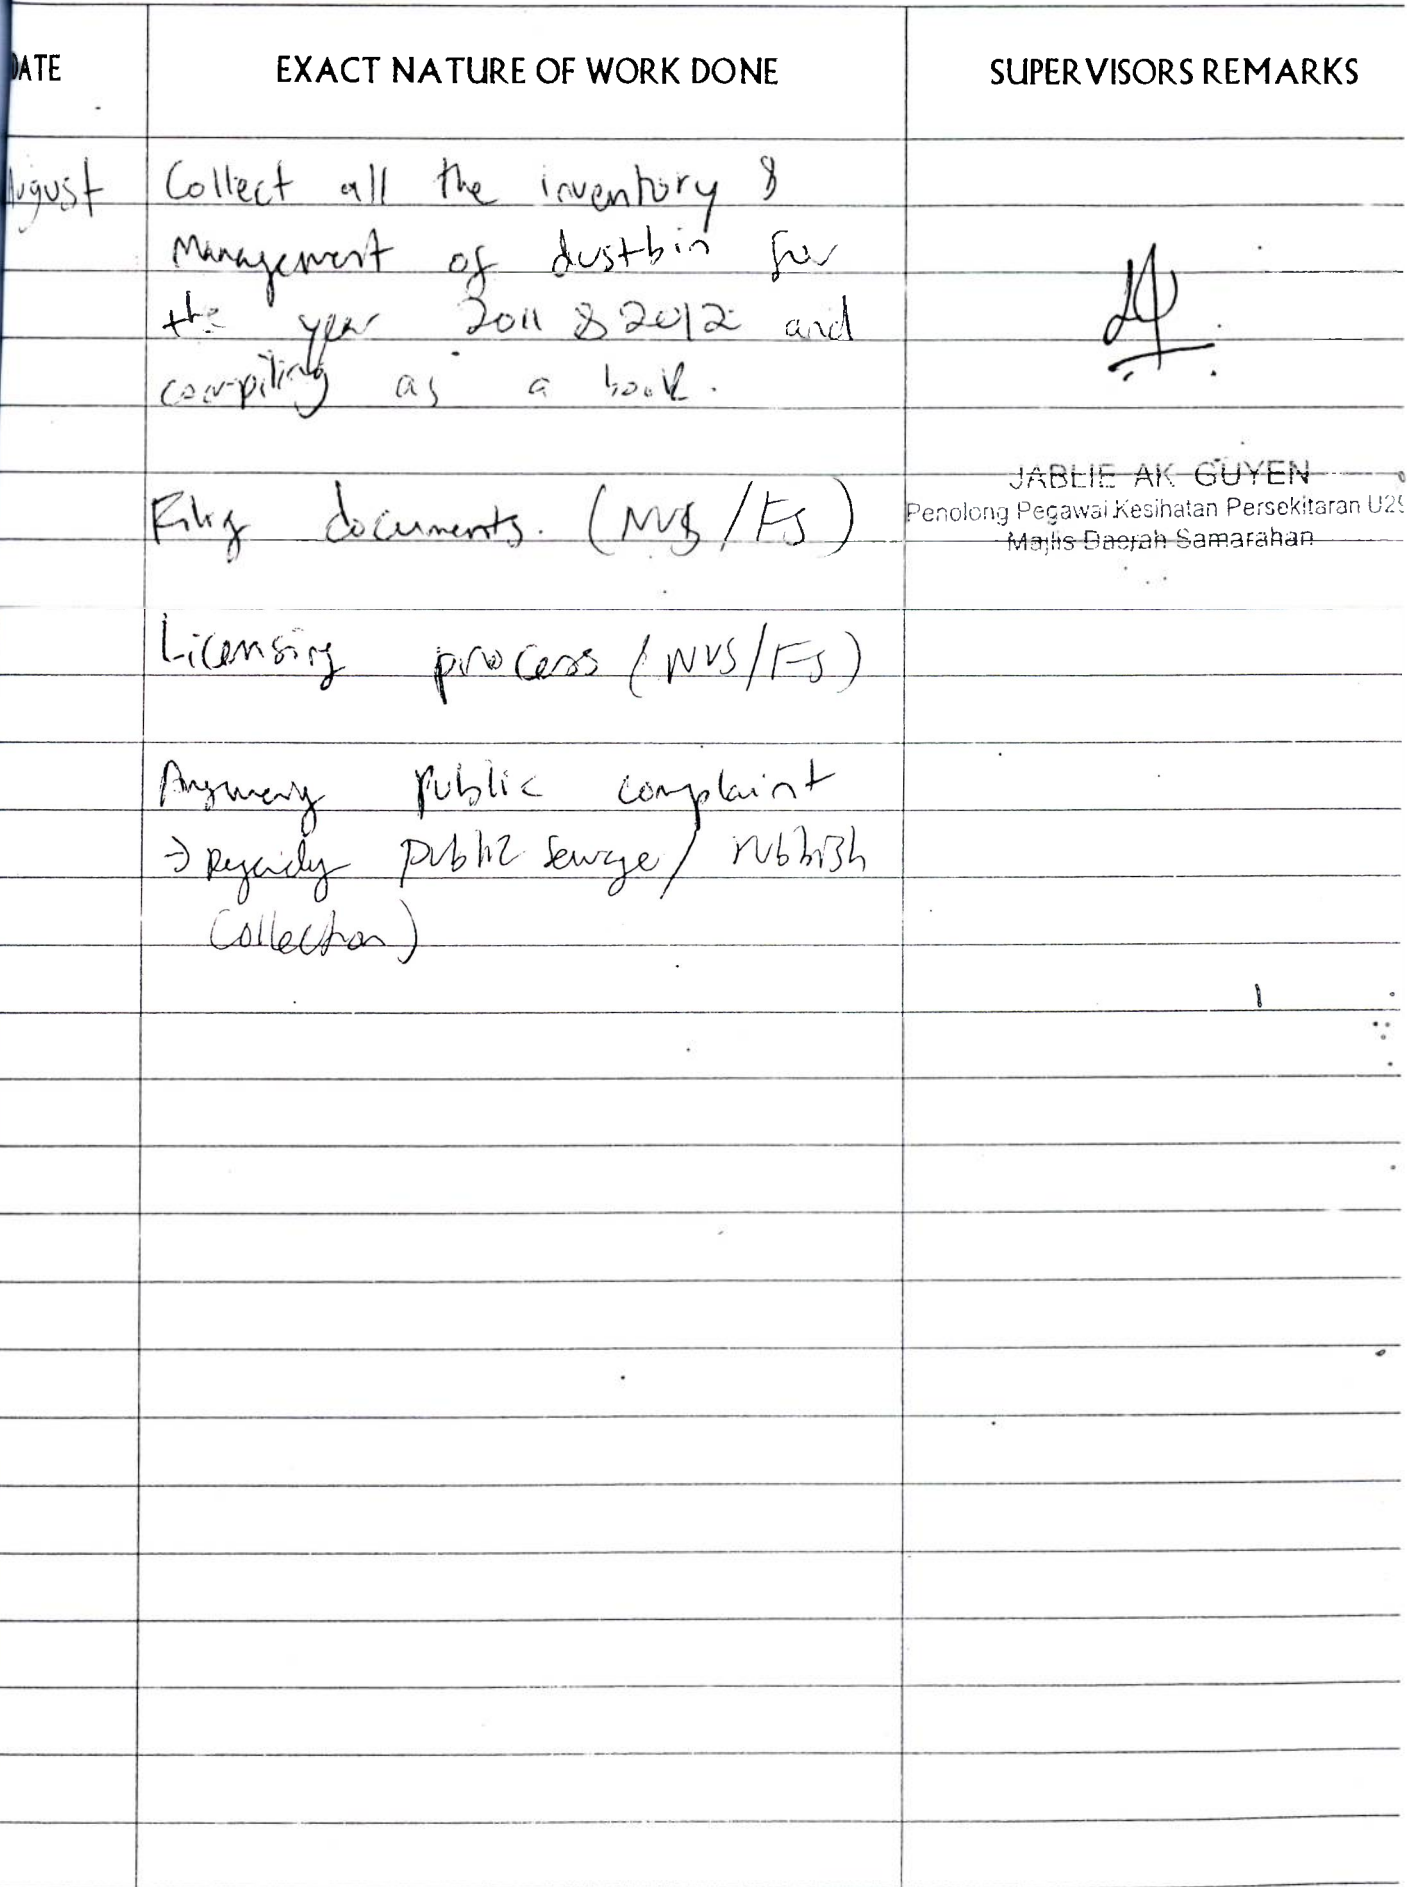 DATE EXACT NATURE OF WORK DONE SUPERVISORS REMARKS
August Collect all the inventory &
Management of dustbin for
the year 2011 & 2012 and
compiling as a book.
JABLIE AK GUYEN
Penolong Pegawai Kesihatan Persekitaran U29
Majlis Daerah Samarahan
Filing documents. (NVS/FS)
Licensing process (NVS/FS)
public complaint
→ public sewage / rubbish
Collection)